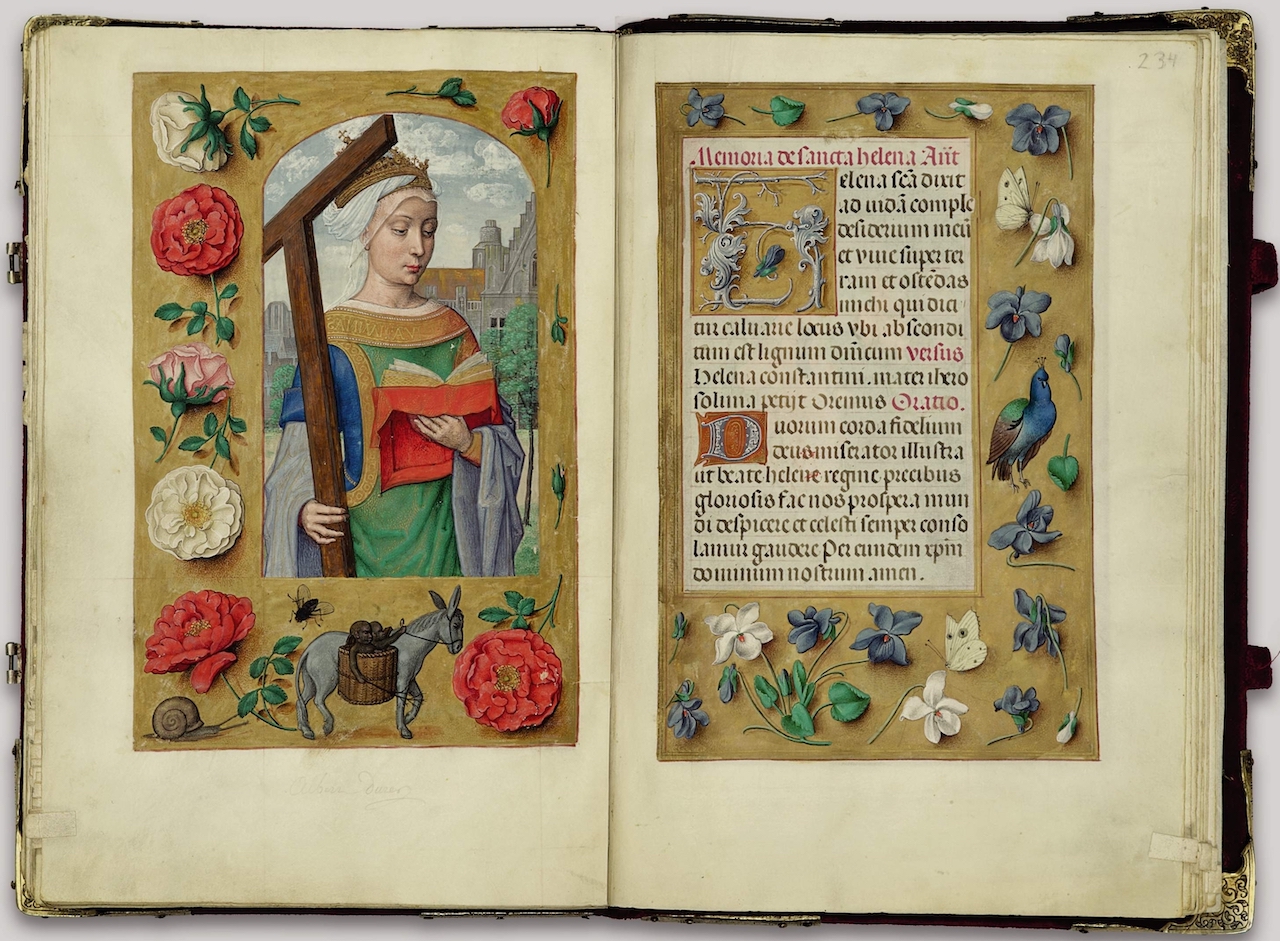 234
Memoria de sancta helena Añt
elena scã dixit
ad iudã comple
desiderium meũ
et viue super ter
ram et ostẽdas
michi qui dici
tur caluarie locus vbi abscondi
tum est lignum dñicum versus
Helena constantini mater ihero
solima petijt Oremus Oratio.
Duorum corda fidelium
deus miserator illustra
ut beate helene regine precibus
gloriosis fac nos prospera mun
di despicere et celesti semper conso
lamur gaudere Per eundem xpm̃
dominum nostrum amen.